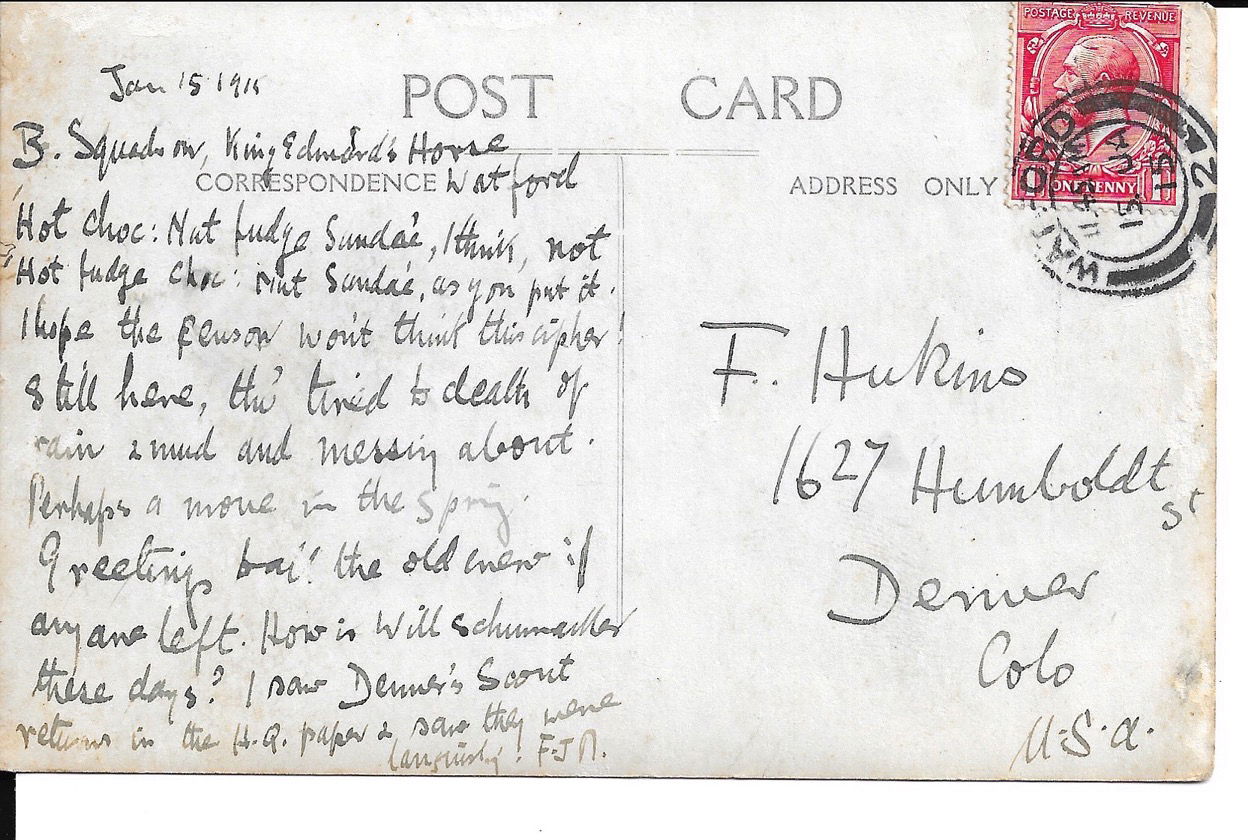 POSTAGE REVENUE
ONE PENNY
WATFORD
Jan 15 1915
POST CARD
B. Squadron, King Edward's Horse
Watford
CORRESPONDENCE
ADDRESS ONLY
Hot choc: Nut fudge Sundae, I think, not
Hot fudge choc: Nut Sundae, as you put it.
I hope the censor won't think this cipher!
Still here, tho' tired to death of
rain & mud and messing about.
Perhaps a move in the Spring.
Greetings to all the old crew if
any are left. How is Will Schumacher
these days? I saw Denver's Scout
returns in the H.Q. paper & saw they were
languishing! F.J.N.
F. Hukins
1627 Humboldt
St
Denver
Colo
U.S.A.